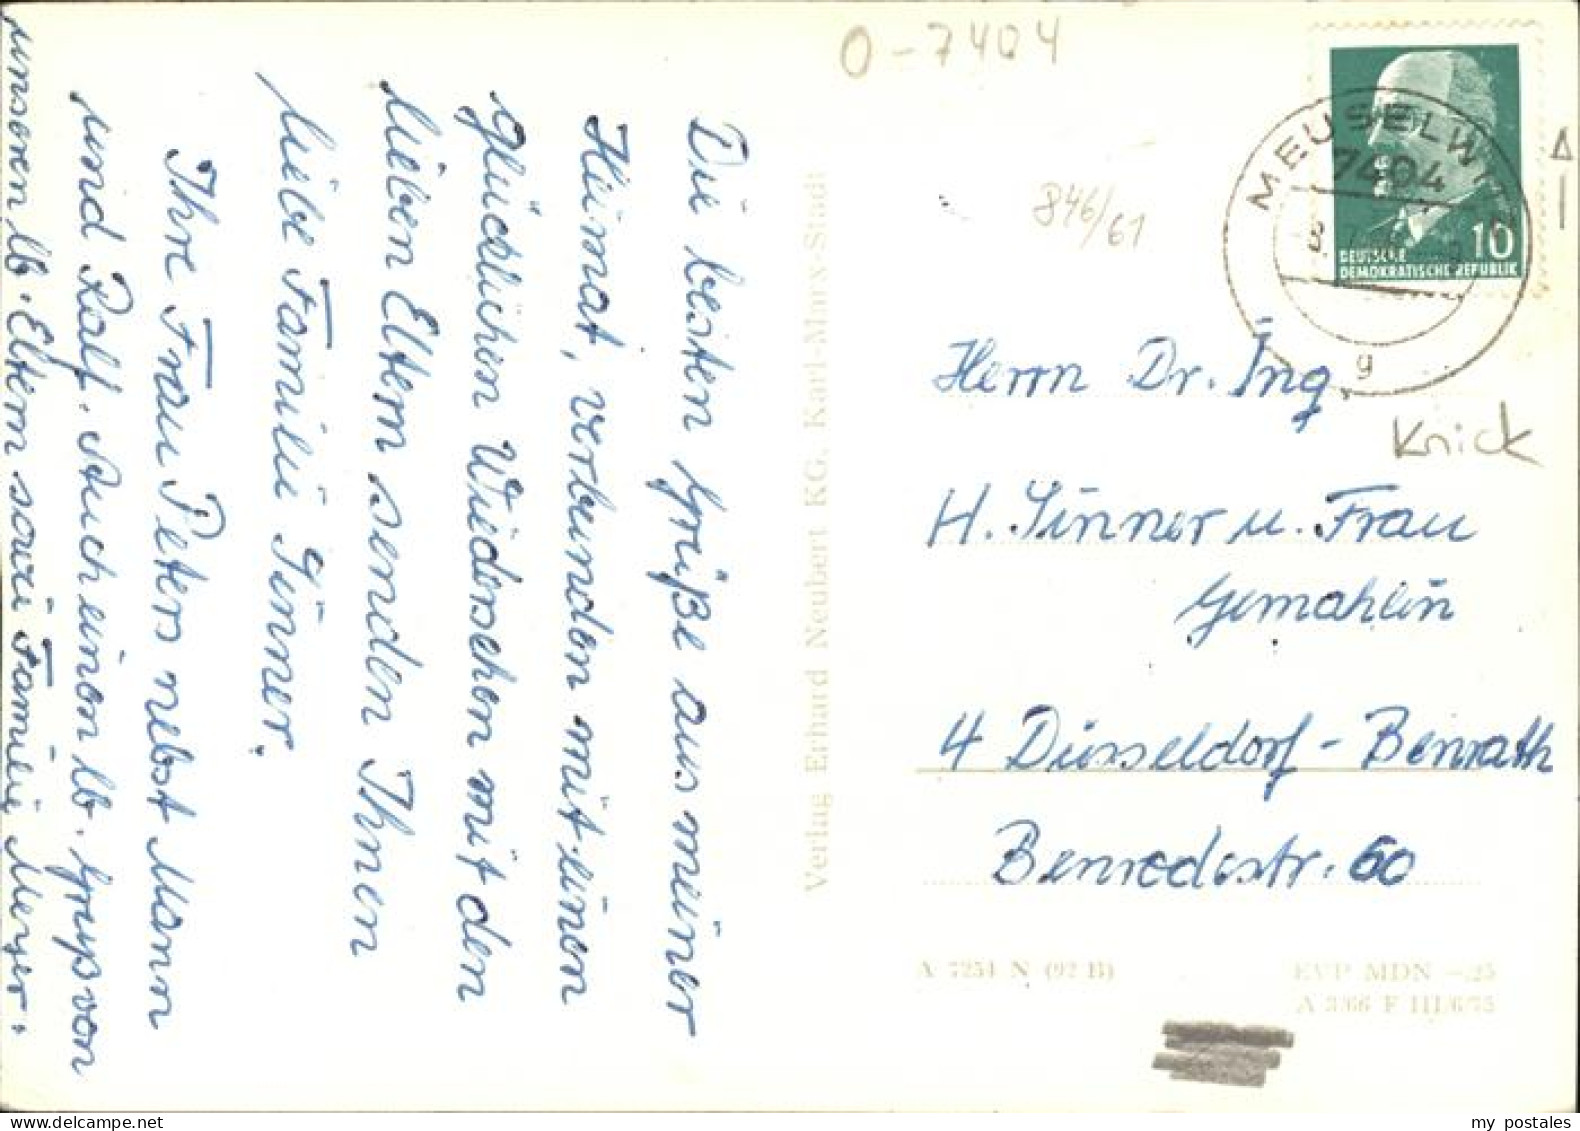 O-7404
846/61
MEUSELWITZ
7404
g
10
DEUTSCHE
DEMOKRATISCHE REPUBLIK
Knick
Die besten Grüße aus meiner
Heimat, verbunden mit einen
glücklichen Wiedersehen mit den
lieben Eltern senden Ihnen
liebe Familie Sinner.
Ihre Frau Peters nebst Mann
und Ralf. Auch einen lb. Gruß von
unseren lb. Eltern sowie Familie Meyer.
Verlag Erhard Neubert KG, Karl-Marx-Stadt
Herrn Dr. Ing
H. Sinner u. Frau
Gemahlin
4 Düsseldorf - Benrath
Benrodestr. 60
A 7254 N (92 B)
EVP MDN -,25
A 3/66 F III/6/75
my postales